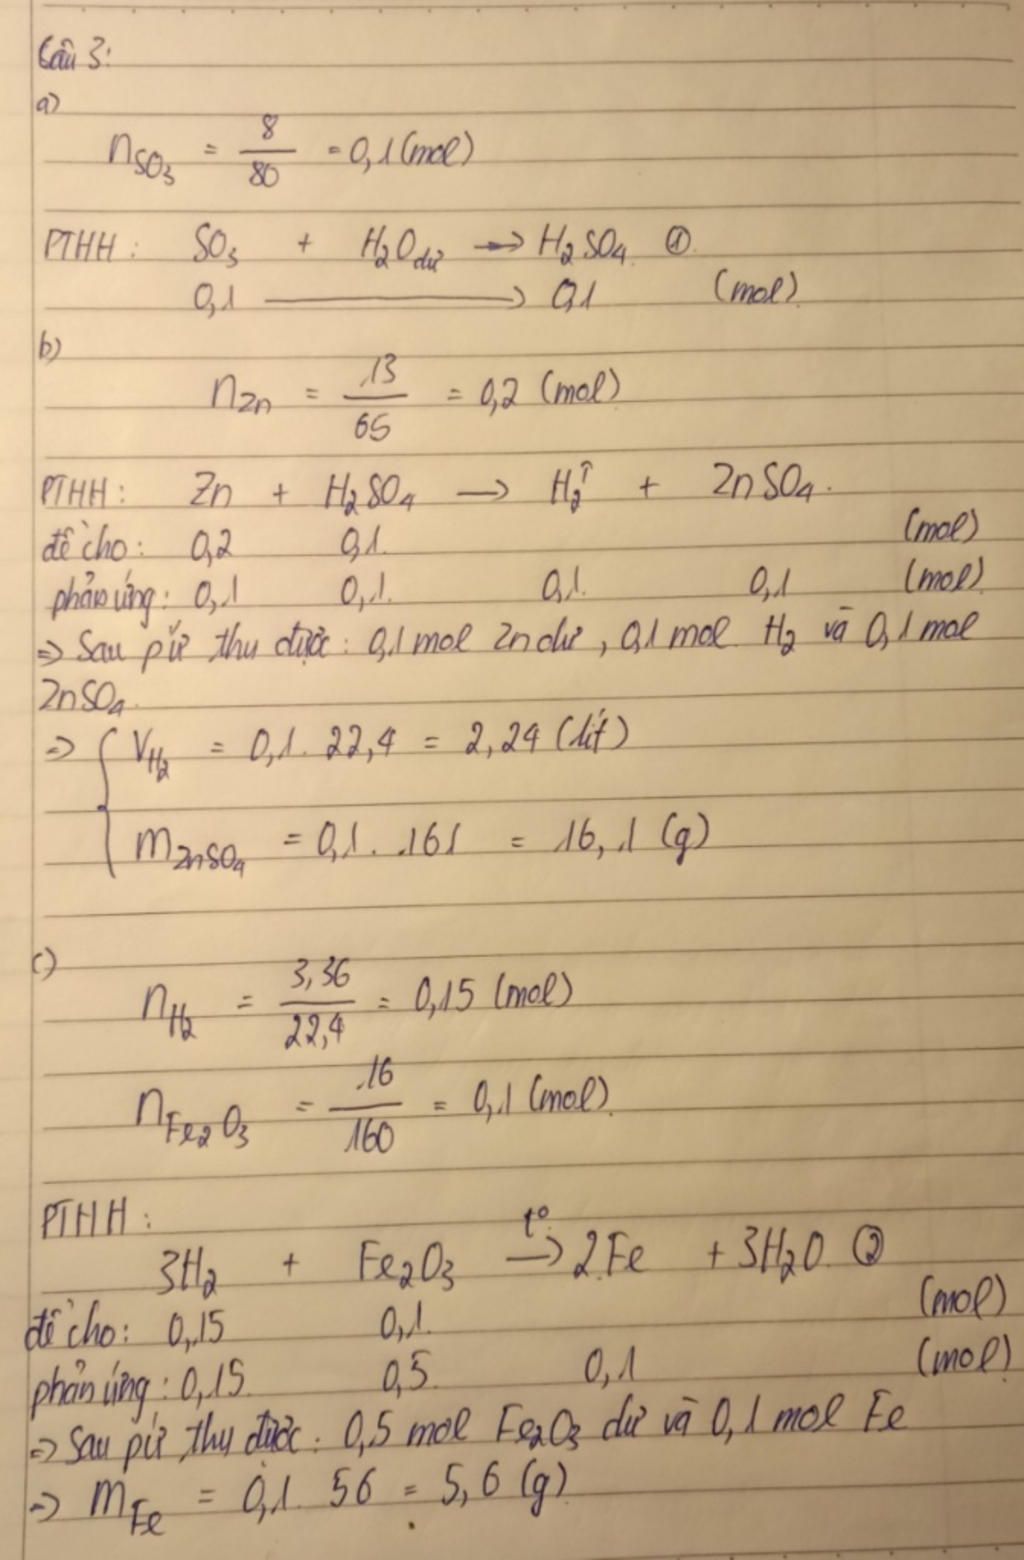 Câu 3:
a)
n_SO₃ = 8/80 = 0,1 (mol)
PTHH: SO₃ + H₂O dư → H₂SO₄ ①
0,1 → 0,1 (mol)
b)
n_Zn = 13/65 = 0,2 (mol)
PTHH: Zn + H₂SO₄ → H₂↑ + ZnSO₄.
đề cho: 0,2 0,1 (mol)
phản ứng: 0,1 0,1 0,1 0,1 (mol)
=> Sau pứ thu được: 0,1 mol Zn dư, 0,1 mol H₂ và 0,1 mol
ZnSO₄
=> { V_H₂ = 0,1 . 22,4 = 2,24 (lít)
m_ZnSO₄ = 0,1 . 161 = 16,1 (g)
c)
n_H₂ = 3,36/22,4 = 0,15 (mol)
n_Fe₂O₃ = 16/160 = 0,1 (mol)
PTHH:
3H₂ + Fe₂O₃ →(t°) 2Fe + 3H₂O ②
đề cho: 0,15 0,1 (mol)
phản ứng: 0,15 0,5 0,1 (mol)
=> Sau pứ thu được: 0,5 mol Fe₂O₃ dư và 0,1 mol Fe
=> m_Fe = 0,1 . 56 = 5,6 (g)